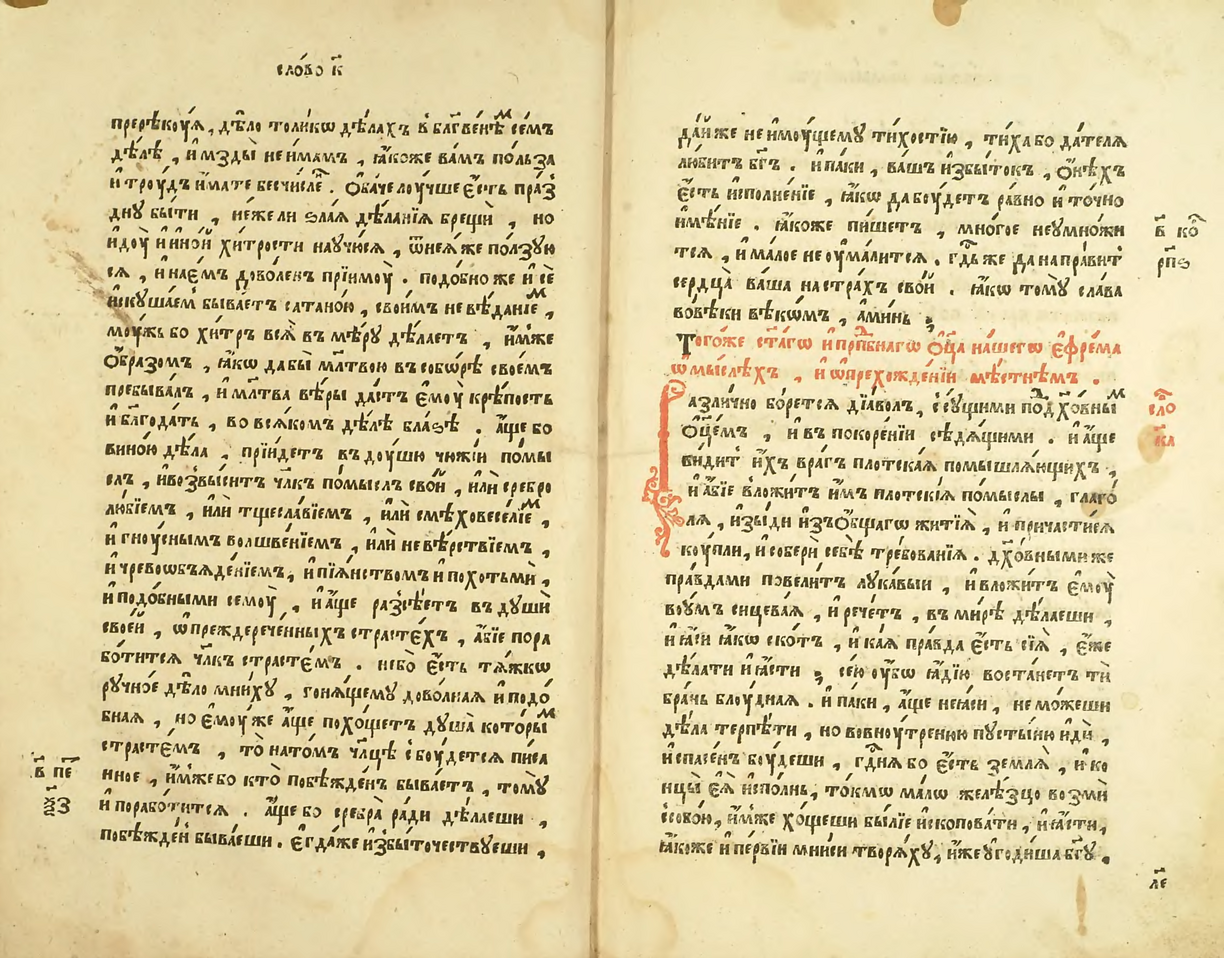 сло́во к҃
прерѣ́коуѧ, дѣ́ло толи́кѡ дѣ́лахъ в̾ бл҃гвенѣⷨ се́мъ
дѣ́лѣ , и҆ мзды̀ не и҆́мамъ , ꙗ҆́коже ва́мъ по́льза
и҆ троу́дъ и҆́мате бесчи́слеⷩ . ѻ҆ба́че лоу́чше є҆́сть пра́з
днꙋ бы́ти , не́жели ѕла́ѧ дѣ́ланїѧ брещѝ , но
и҆доу̀ и҆ и҆но́й хи́трости наꙋчю́сѧ , ѿнеѧ́же по́лзꙋю
сѧ , и҆ нае́мъ дово́ленъ прїимоу̀ . подо́бно же и҆ сѐ
и҆скꙋша́ем̾ быва́етъ сатано́ю , свои́мъ невѣ́данїеⷨ ,
моу́жь бо хи́тръ всѧ̀ въ мѣ́рꙋ дѣ́лаетъ , и҆́мже
ѻ҆́бразомъ , ꙗ҆́кѡ дабы̀ мл҃твою въ собо́рѣ свое́мъ
пребыва́лъ , и҆ мл҃тва вѣ́ры да́стъ є҆моу̀ крѣ́пость
и҆ бл҃года́ть , во всѧ́комъ дѣ́лѣ бла́ѕѣ . а҆́ще бо
вино́ю дѣ́ла , прїи́детъ въ доу́шю чюжі́и по́мы
слъ , и҆возвы́ситъ чл҃къ по́мыслъ сво́й , и҆лѝ сребро
лю́бїемъ , и҆лѝ тщесла́вїемъ , и҆лѝ смѣхо́весе́лїеⷨ ,
и҆ гноу́снымъ волшве́нїемъ , и҆лѝ невѣ́рствїемъ ,
и҆ чревоѡб̾ѧде́нїемъ, и҆ пїѧ́нствомъ и҆ по́хотьмѝ ,
и҆ подо́бными семоу̀ , и҆ а҆́ще разсѣ́етъ въ дꙋшѝ
свое́й , ѡ҆ преждерече́нныхъ страсте́хъ , а҆́бїе пора
бо́титсѧ чл҃къ страсте́мъ . не́бо є҆́сть тѧ́жкѡ
рꙋчно́е дѣ́ло мни́хꙋ , гонѧ́щемꙋ дово́лнаѧ и҆ подо́
бнаѧ , но є҆моу́ же а҆́ще похо́щетъ дꙋша̀ кото́рыⷨ
страсте́мъ , то̀ на то́мъ чл҃цѣ с̾боу́детсѧ писа
нное , и҆́мже бо кто̀ побѣжде́нъ быва́етъ , томꙋ̀
и҆ порабо́титсѧ . а҆́ще бо сребра̀ ра́ди дѣ́лаеши ,
побѣжде́н̾ быва́еши . є҆гда́же и҆збы́точествꙋеши ,
в҃ пеⷮ
н҃з
да́йже не и҆мꙋ́щемꙋ ти́хостїю , ти́ха бо да́телѧ
лю́битъ бг҃ъ . и҆ па́ки , ва́шъ и҆збы́токъ , ѻ҆нѣ́хъ
є҆́сть и҆сполне́нїе , ꙗ҆́кѡ да боу́детъ ра́вно и҆ то́чно
и҆мѣ́нїе . ꙗ҆́коже пи́шетъ , мно́гое не ᲂу҆мно́жи
тсѧ , и҆ ма́лое не ᲂу҆ма́литсѧ . гд҃ь же да напра́вит̾
сердца̀ ва́ша на стра́хъ сво́й . ꙗ҆́кѡ томꙋ̀ сла́ва
во вѣ́ки вѣкѡ́мъ , а҆ми́нь ;
Того́же ст҃а́гѡ и҆ прпⷣбнагѡ ѻ҆ц҃а̀ на́шегѡ є҆фре́ма
ѡ҆ мы́слехъ , и҆ ѡ҆ прехожде́нїи мѣ́стнѣмъ .
Разли́чно бо́ретсѧ дїа́волъ, с̾ сꙋ́щими под̾ дх҃о́вныⷨ
ѻ҆ц҃е́мъ , и҆ въ покоре́нїи сѣдѧ́щими . и҆ а҆́ще
ви́дит̾ и҆́хъ вра́гъ пло́тскаѧ помышлѧ́ющихъ ,
и҆ а҆́бїе вложи́тъ и҆́мъ пло́тскїѧ по́мыслы , глаго́
лѧ , и҆зы́ди и҆зъ ѻ҆́бщагѡ житїѧ̀ , и҆ причасти́сѧ
коу́пли, и҆ соберѝ себѣ̀ тре́бованїѧ . дх҃о́вными же
пра́вдами повели́тъ лꙋка́выи , и҆ вложи́тъ є҆моу̀
во ᲂу҆́мъ си́цеваѧ , и҆ рече́тъ , въ ми́рѣ дѣ́лаеши ,
и҆ ꙗ҆́си ꙗ҆́кѡ ско́тъ , и҆ ка́ѧ пра́вда є҆́сть сїѧ̀ , є҆́же
дѣ́лати и҆ ꙗ҆́сти ; се́ю ᲂу҆́бѡ ꙗ҆́дїю воста́нетъ тѝ
бра́нь блоу́днаѧ . и҆ па́ки , а҆́ще не ꙗ҆́си , не мо́жеши
дѣ́ла терпѣ́ти , но во вноу́треннюю пꙋсты́ню и҆дѝ ,
и҆ спасе́нъ боу́деши , гдⷭ҇нѧ бо є҆́сть землѧ̀ , и҆ ко
нцы̀ є҆ѧ̀ и҆спо́лнь, то́кмѡ ма́лѡ желѣ́зцо возмѝ
с̾ собо́ю, и҆́мже хо́щеши бы́лїе и҆скопова́ти , и҆ ꙗ҆́сти,
ꙗ҆́коже и҆ пе́рвїи мни́си творѧ́хꙋ, и҆́же ᲂу҆годи́ша бг҃ꙋ .
в҃ коⷬ
рп҃ѕ
слⷪо
к҃а
л҃е